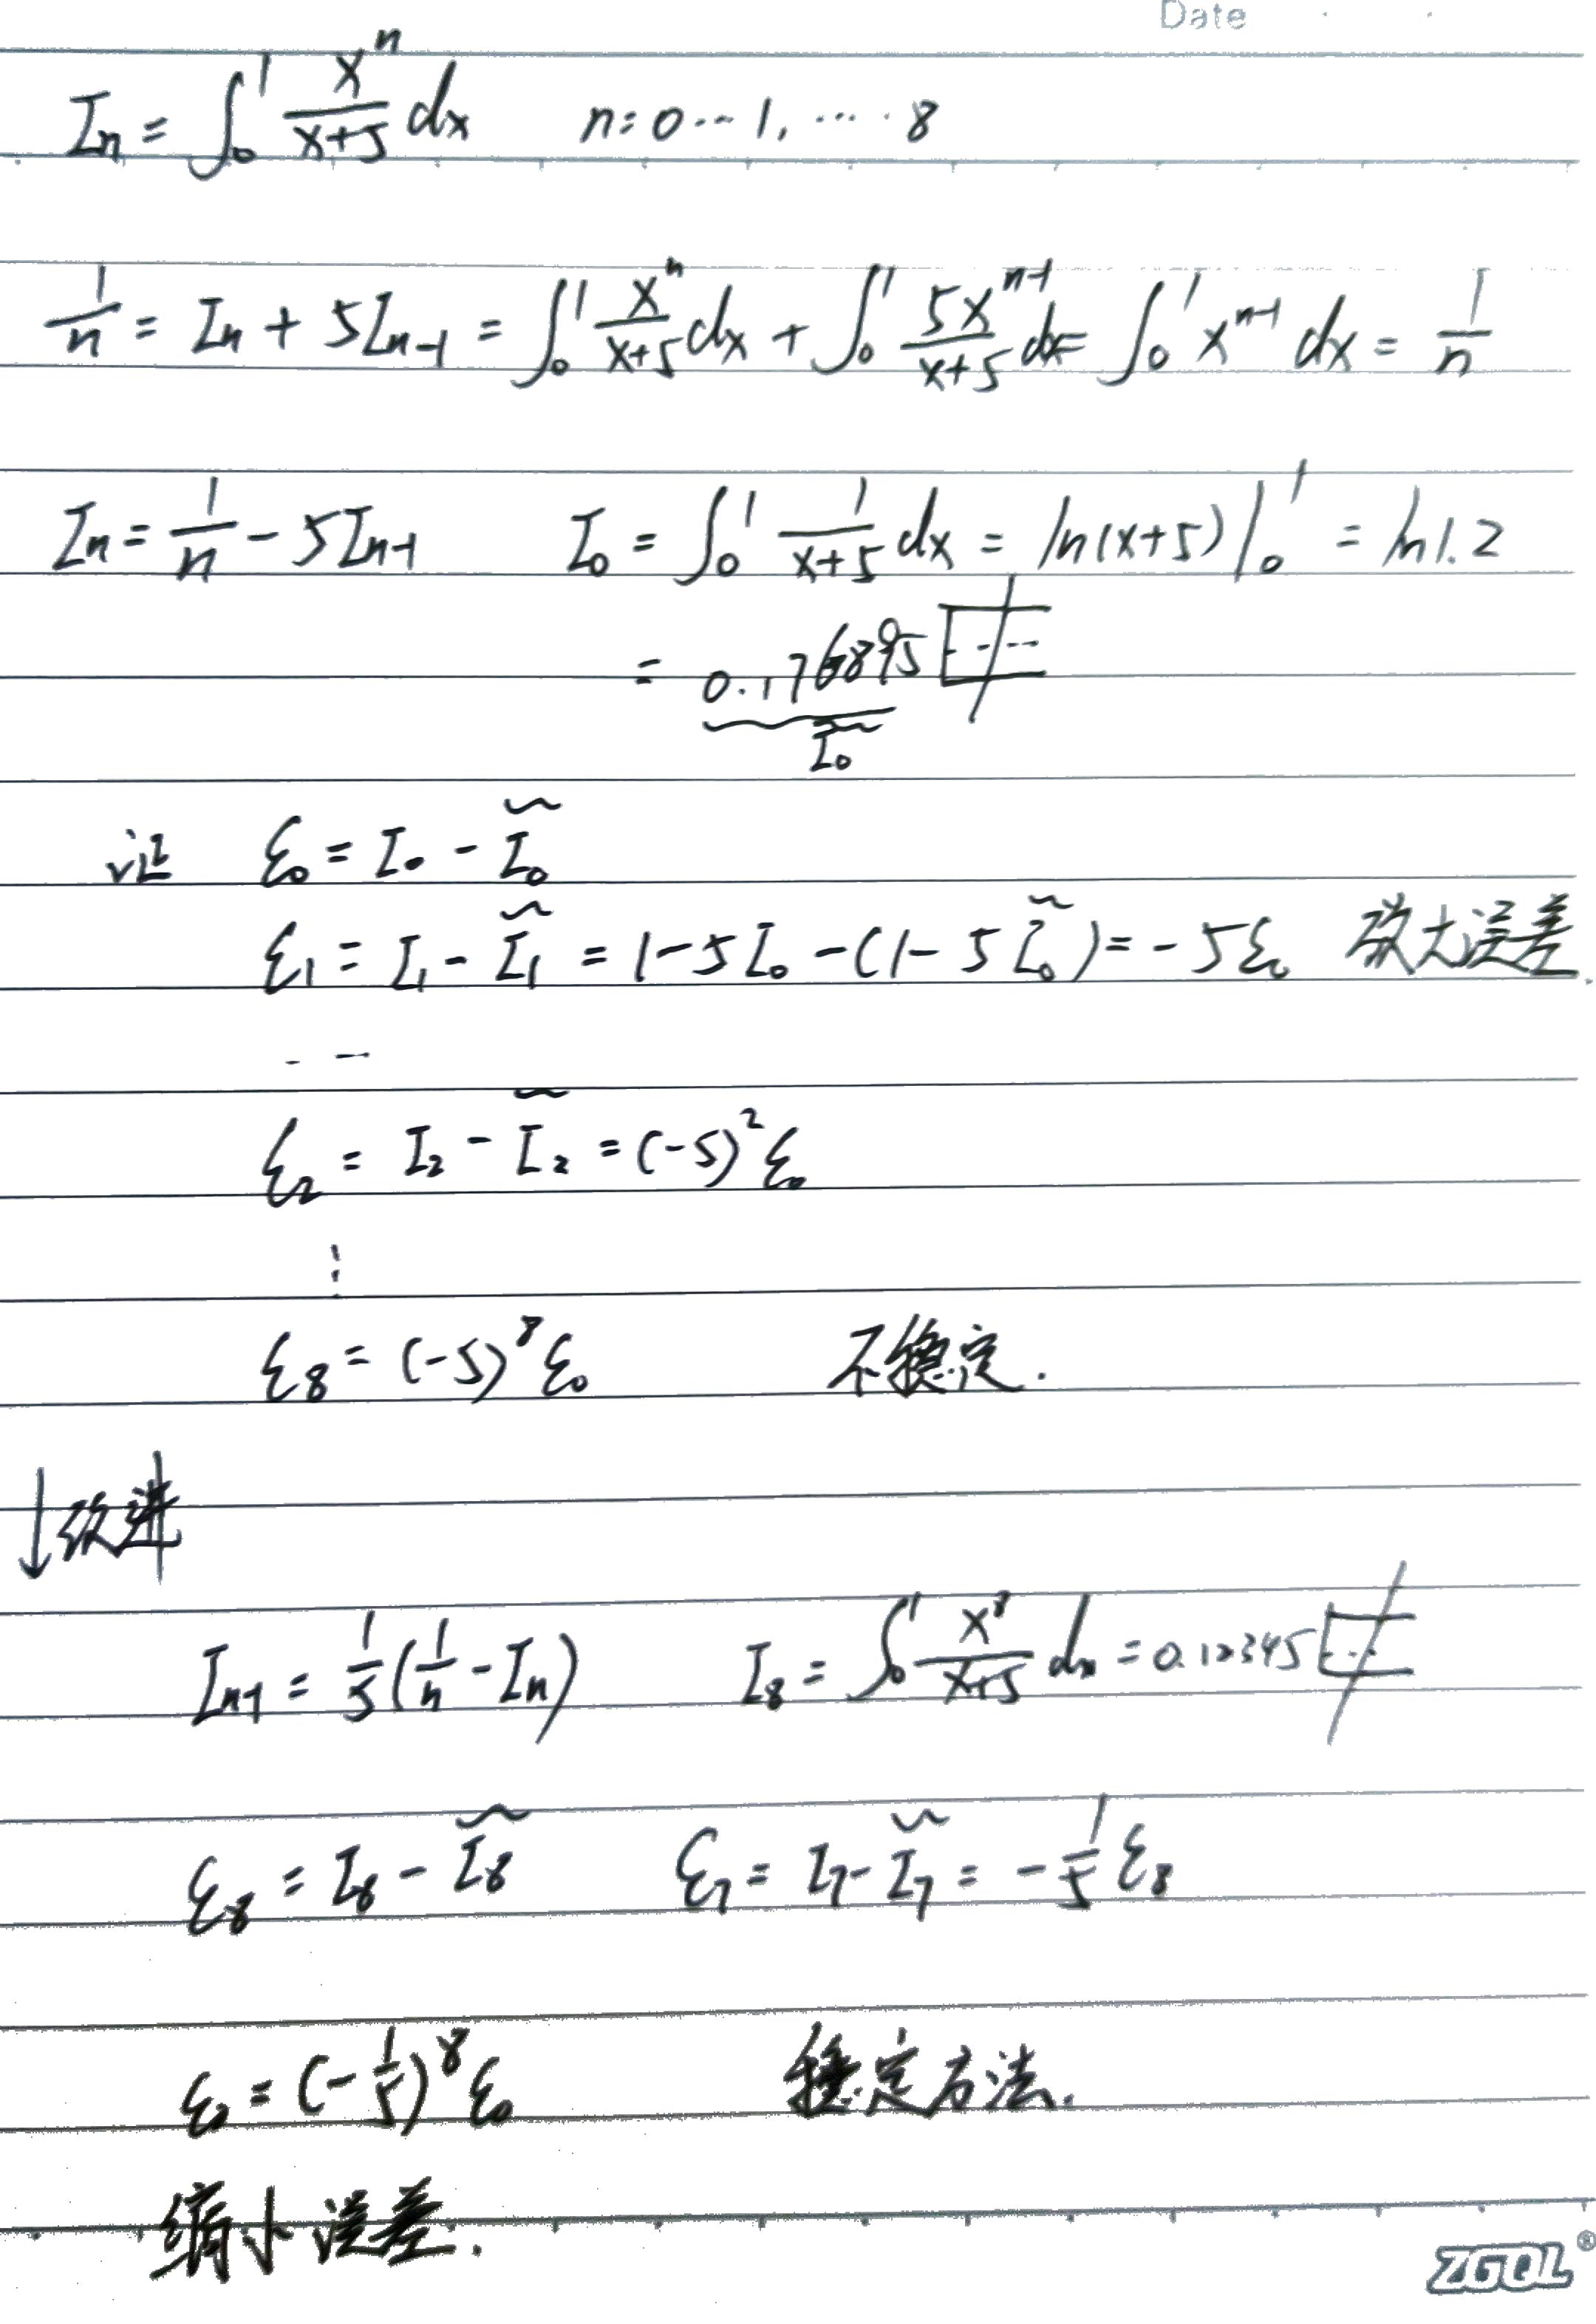 Date
Iₙ = ∫₀¹ xⁿ/(x+5) dx n=0…1,…·8
1/n = Iₙ + 5Iₙ₋₁ = ∫₀¹ xⁿ/(x+5) dx + ∫₀¹ 5xⁿ⁻¹/(x+5) dx = ∫₀¹ xⁿ⁻¹ dx = 1/n
Iₙ = 1/n - 5Iₙ₋₁ I₀ = ∫₀¹ 1/(x+5) dx = ln(x+5)|₀¹ = ln1.2
= 0.176895
Ĩ₀
证 ε₀ = I₀ - Ĩ₀
ε₁ = I₁ - Ĩ₁ = 1-5I₀-(1-5Ĩ₀) = -5ε₀ 放大误差.
ε₂ = I₂ - Ĩ₂ = (-5)²ε₀
⋮
ε₈ = (-5)⁸ε₀ 不稳定.
↓改进
Iₙ₋₁ = 1/5(1/n - Iₙ) I₈ = ∫₀¹ x⁸/(x+5) dx = 0.12345
ε₈ = I₈ - Ĩ₈ ε₇ = I₇ - Ĩ₇ = -1/5 ε₈
ε₀ = (-1/5)⁸ε₀ 稳定方法.
缩小误差.
ZGQL®